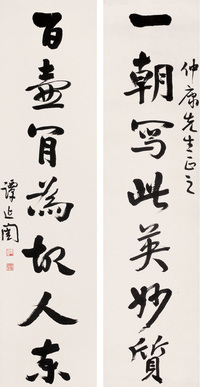 仲康先生正之
一朝寫此英妙質
百壺肎為故人東
譚延闓